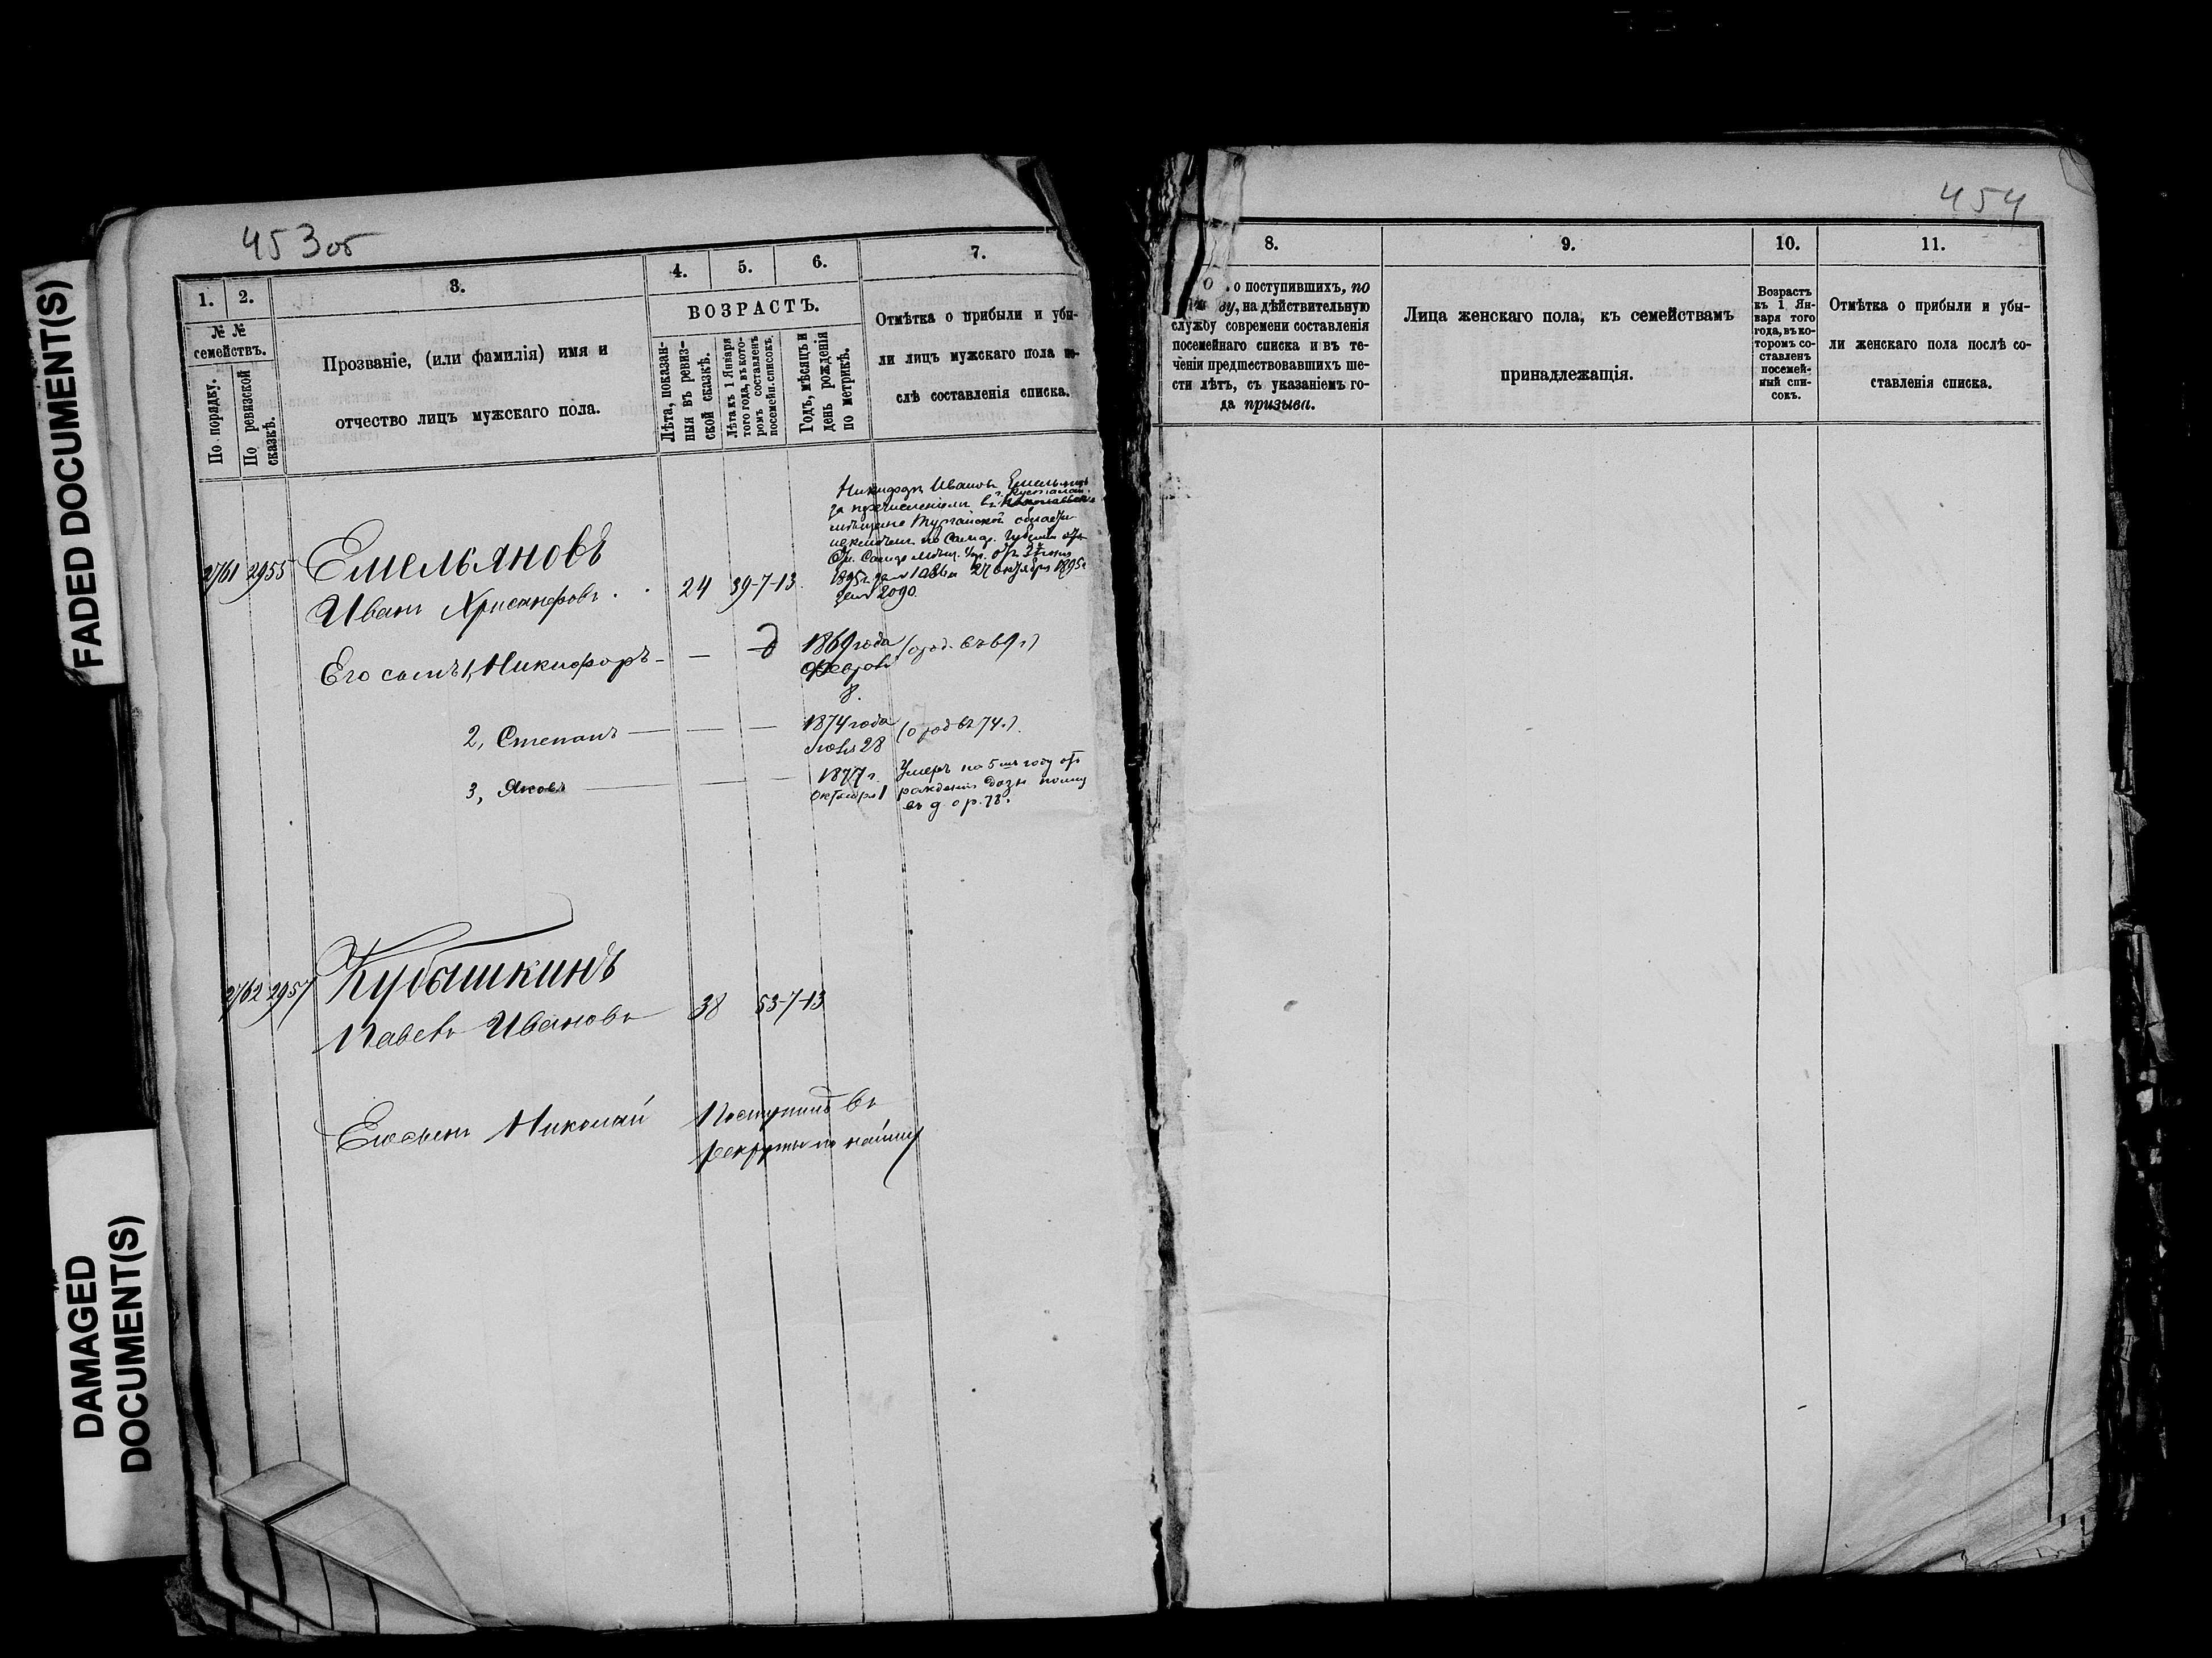 FADED DOCUMENT(S)
DAMAGED
DOCUMENT(S)
453об
1.
2.
3.
4.
5.
6.
7.
№ №
семействъ.
По порядку.
По ревизской
сказкѣ.
Прозваніе, (или фамилія) имя и
отчество лицъ мужскаго пола.
ВОЗРАСТЪ.
Лѣта, показан-
ныя въ ревиз-
ской сказкѣ.
Лѣта къ 1 Января
того года, въ кото-
ромъ составленъ
посемейн. списокъ.
Годъ, мѣсяцъ и
день рожденія
по метрикѣ.
Отмѣтка о прибыли и убы-
ли лицъ мужскаго пола по-
слѣ составленія списка.
2761 2955
Емельяновъ
Иванъ Хрисанфовъ 24 39-7-13
Никифоръ Ивановъ Емельяновъ
за перечисленіемъ въ г. Кустанай
мѣщане Тургайской области
исключенъ по
1895 г. за № 1086 и 27 октября 1895 г.
за № 2090.
Его сынъ 1, Никифоръ — 1869 года
8.
2, Степанъ — 1874 года
28
3, Яковъ — 1877 г.
Октября 1
Умеръ на 5 году отъ
рожденія
2762 2957
Кубашкинъ
Павелъ Ивановъ 38 53-7-13
Его сынъ Николай Поступилъ въ
рекруты по найму
454
8.
9.
10.
11.
о поступившихъ, по
на дѣйствительную
службу современи составленія
посемейнаго списка и въ те-
ченіи предшествовавшихъ ше-
сти лѣтъ, съ указаніемъ го-
да призыва.
Лица женскаго пола, къ семействамъ
принадлежащія.
Возрастъ
къ 1 Ян-
варя того
года, въ ко-
торомъ со-
ставленъ
посемей-
ный спи-
сокъ.
Отмѣтка о прибыли и убы-
ли женскаго пола послѣ со-
ставленія списка.